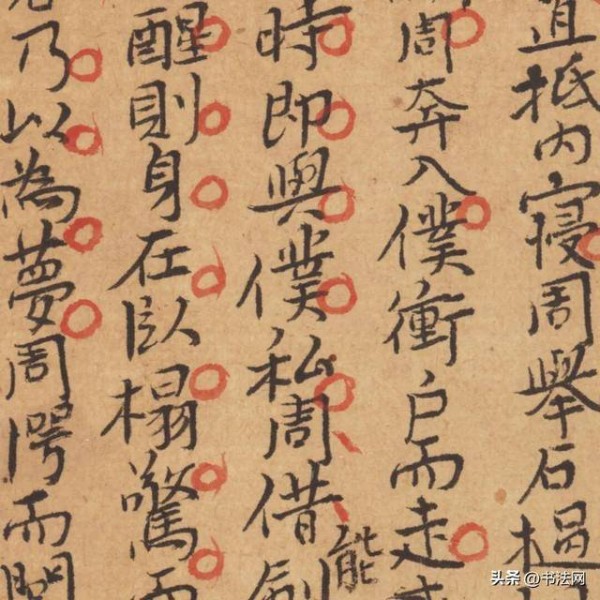 直抵内寢周舉石榻
周奔入僕衝户而走
時即與僕私周借
能
醒則身在臥榻驚而
乃以為夢周愕而
头条 @书法网